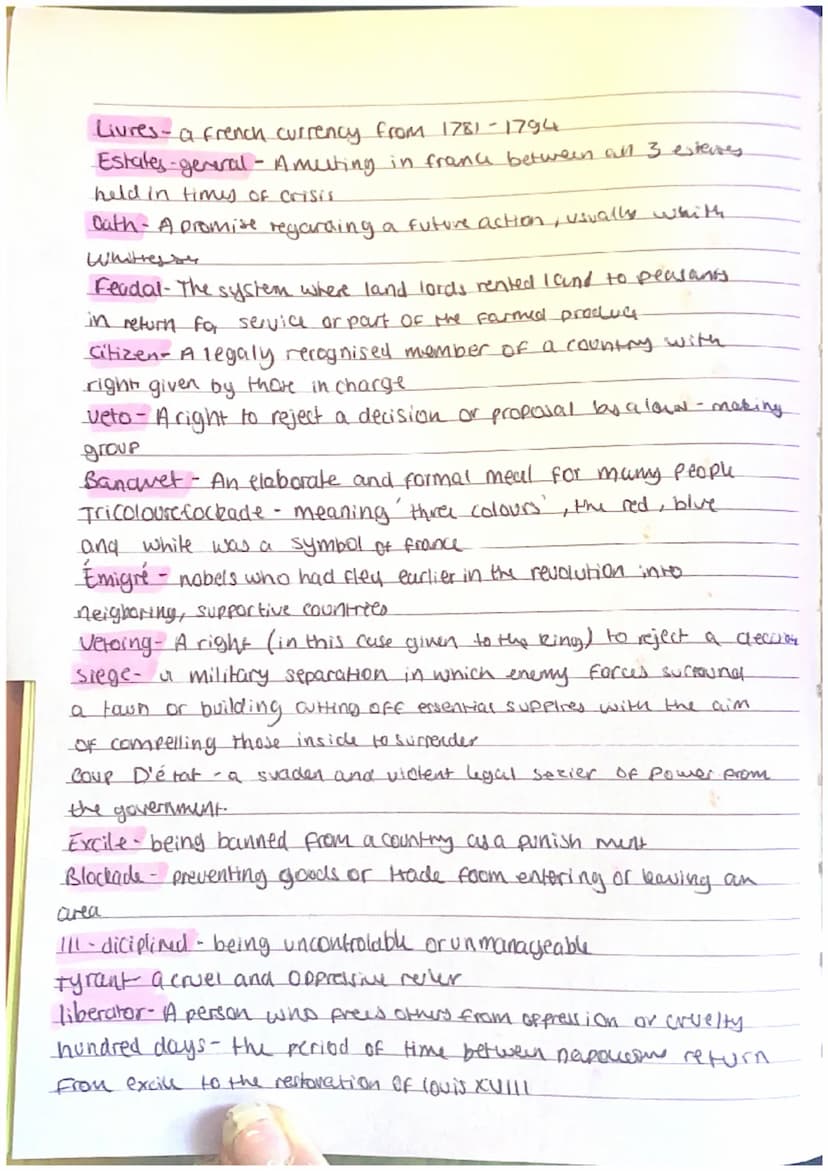 Livres - a french currency from 1781 - 1794
Estates-general - A meeting in france between all 3 estates
held in times of crisis
Oath - A promise regarding a future action, usually whith
Feudal - The system where land lords rented land to peasants
in return for service or part of the farmed produce
Citizen - A legaly recognised member of a country with
right given by those in charge
Veto - A right to reject a decision or proposal by a law - making
group
Banquet - An elaborate and formal meal for many people
Tricolour cockade - meaning 'three colours', the red, blue
and white was a symbol of france
Émigré - nobels who had fley earlier in the revolution into
neigboring, supportive countries
Vetoing - A right (in this case given to the king) to reject a
Siege - a military separation in which enemy forces surround
a town or building cutting off essential supplies with the aim
of compelling those inside to surrender
Coup D'état - a sudden and violent legal of power from
the government.
Excile - being banned from a country as a punish ment
Blockade - preventing goods or trade from entering or leaving an
area
Ill - diciplined - being uncontrolable or unmanageable
tyrant - a cruel and oppressive ruler
liberator - A person who frees others from oppression or cruelty
hundred days - the period of time between return
from excile to the restoration of louis XVIII